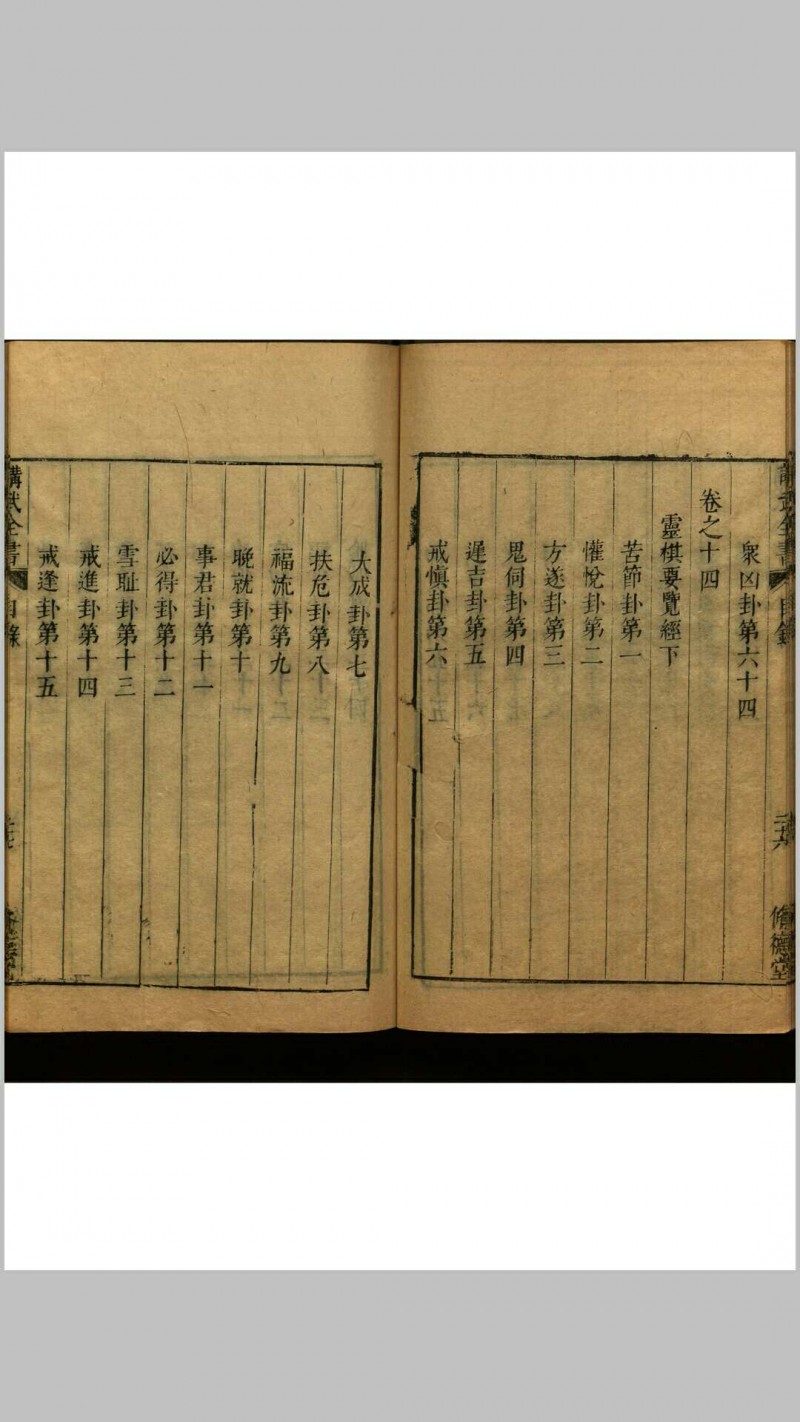 講武全書 目錄 二十六 脩德堂
衆凶卦第六十四
卷之十四
靈棋要覽經下
苦節卦第一
懽悅卦第二
方遂卦第三
鬼伺卦第四
遲吉卦第五
戒慎卦第六
大成卦第七
扶危卦第八
福流卦第九
晚就卦第十
事君卦第十一
必得卦第十二
雪耻卦第十三
戒進卦第十四
戒逢卦第十五
講武全書 目錄